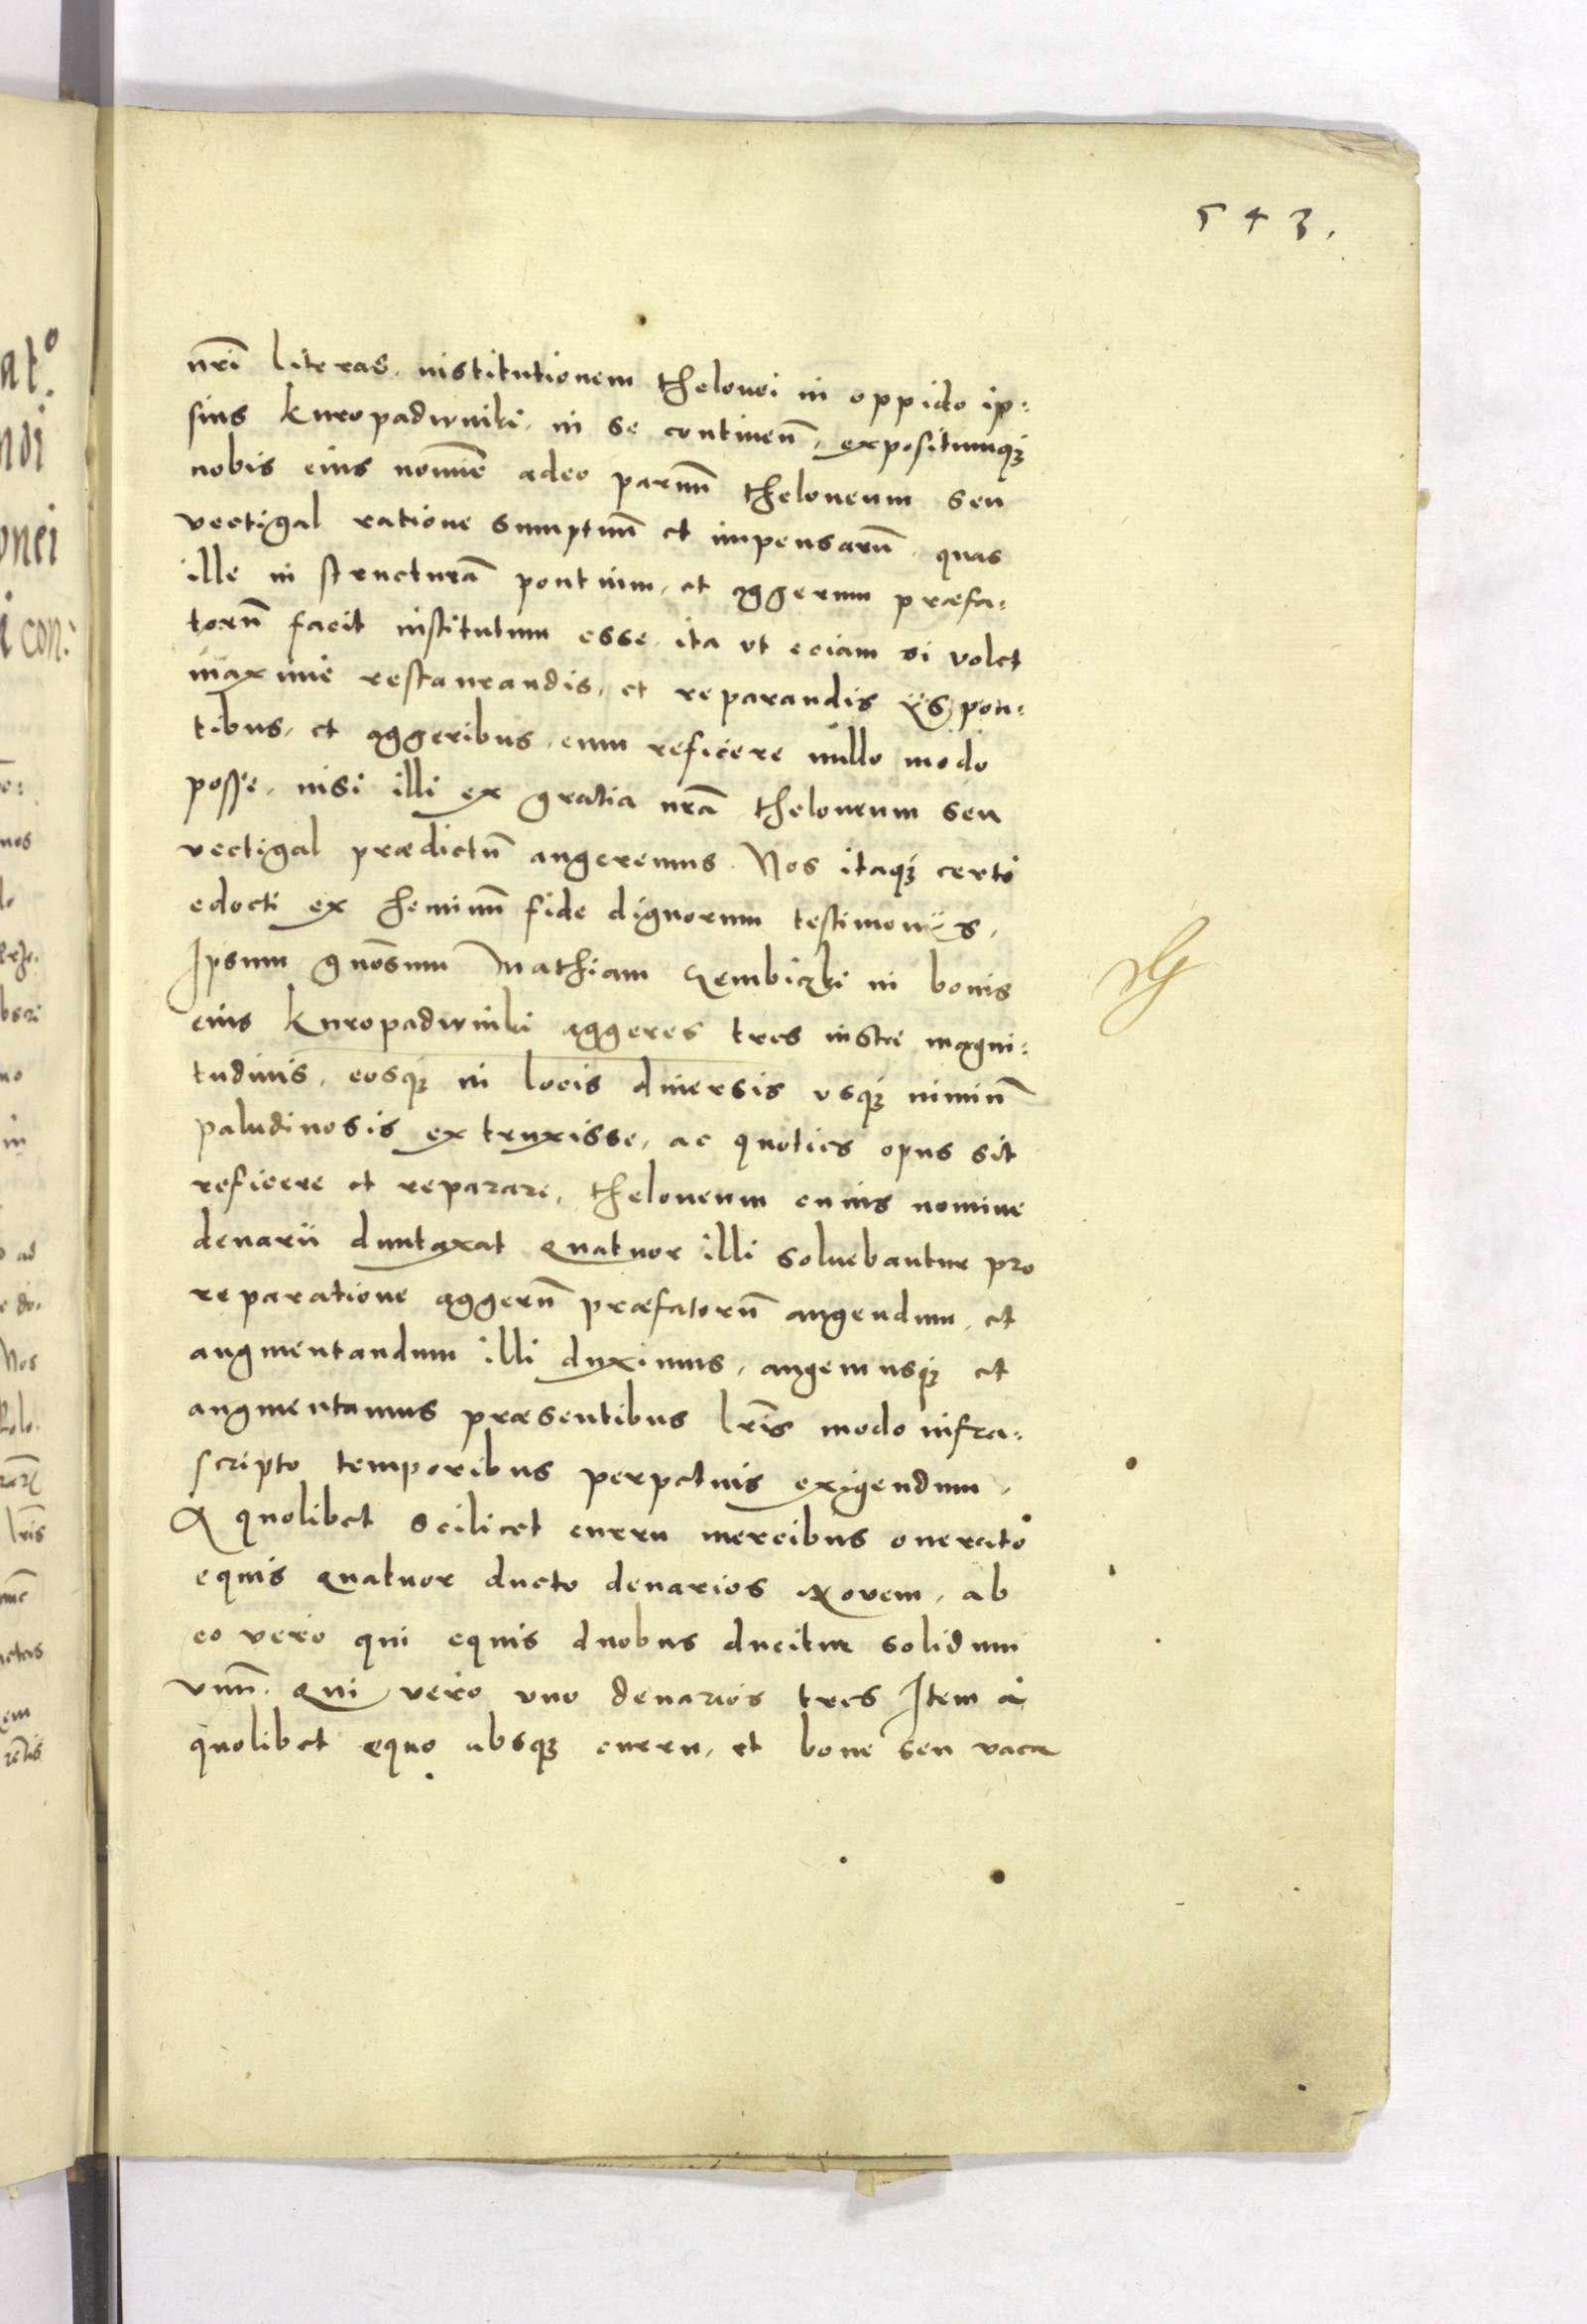 543.
nr̃i literas. institutionem thelonei in oppido ip:
sius Kuropadwniki. in se contineñ. expositumq₃
nobis eius nomĩe adeo parvũ theloneum seu
vectigal ratione sumptuũ et impensarũ. quas
ille in structurã pontium. et aggerum præfa:
torũ facit institutum esse. ita ut eciam si volet
maxime restaurandis. et reparandis ijs pon:
tibus. et aggeribus. eum reficere nullo modo
posse. nisi illi ex gratia nr̃a theloneum seu
vectigal prædictũ augeremus. Nos itaq₃ certo
edocti ex hominũ fide dignorum testimonijs.
Ipsum gnõsum Mathiam Zembiczki in bonis
eius Kuropadwniki aggeres tres iustæ magni:
tudinis. eosq₃ in locis diversis usq₃ nimiũ
paludinosis extruxisse. ac quoties opus sit
reficere et reparare. theloneum cuius nomine
denarii duntaxat quatuor illi soluebantur pro
reparatione aggerũ præfatorũ augendum. et
augmentandum illi duximus. augemusq₃ et
augmentamus præsentibus lr̃is modo infra:
scripto temporibus perpetuis exigendum.
A quolibet scilicet curru mercibus onerato
equis quatuor ducto denarios novem. ab
eo vero qui equis duobus ducitur solidum
vnũ. qui vero uno denarios tres Item a
quolibet equo absq₃ curru. et boue seu vaca
at.º
ndi
onei
i con:
nos
Nos
lr̃is